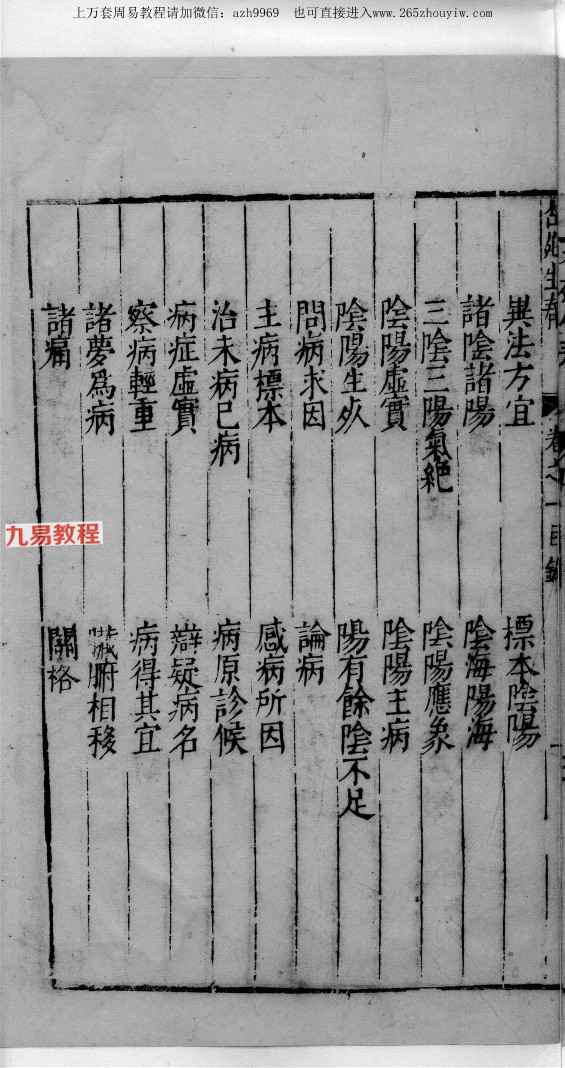 上万套周易教程请加微信：azh9969　也可直接进入www.265zhouyiw.com
異法方宜　標本陰陽
諸陰諸陽　陰海陽海
三陰三陽氣絶　陰陽應象
陰陽虛實　陰陽主病
陰陽生　陽有餘陰不足
問病求因　論病
主病標本　感病所因
治未病已病　病原診候
病症虛實　辯疑病名
察病輕重　病得其宜
諸夢爲病　臟腑相移
諸痛　關格
九易教程